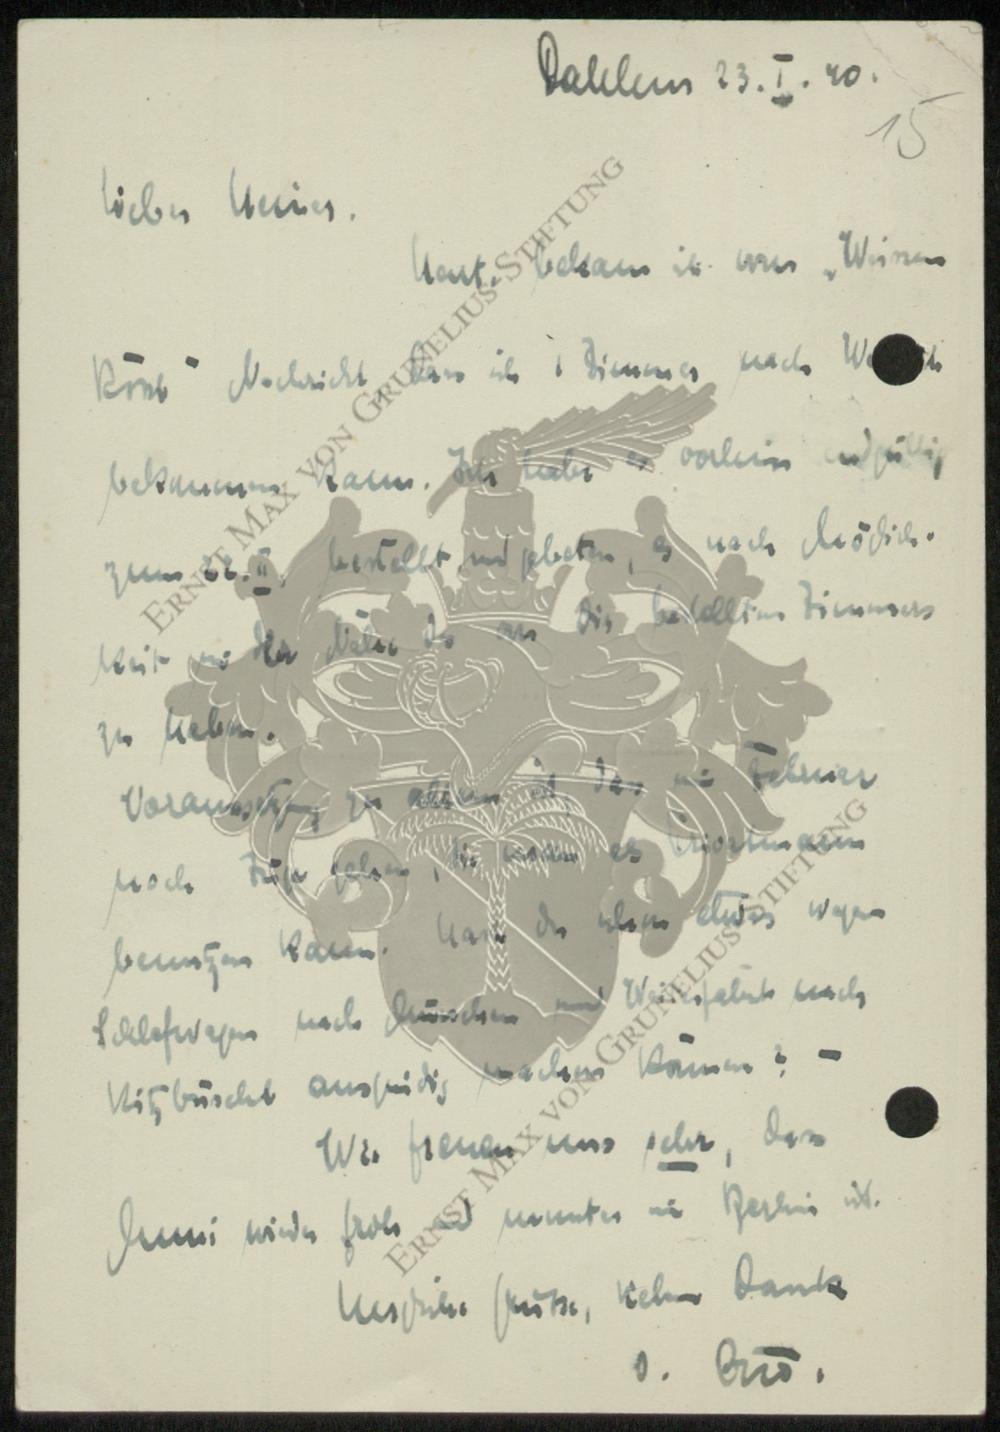 Dahlem 23.I.40.
15
Lieber Heiner.
Heut. bekam ich vom „Weissen
Rössl" Nachricht dass ich 1 Zimmer nach
bekommen kann. Ich habe es vorhin endgültig
zum 22.II. bestellt und gebeten, es nach Möglich-
keit in der Nähe des von Dir bestellten Zimmers
zu geben.
Voraussetzung zu allem ist, dass im Februar
noch Züge gehen, die man als Privatmann
benutzen kann. Hast du schon etwas wegen
Schlafwagen nach München und Weiterfahrt nach
Kitzbühel ausfindig machen können? –
Wir freuen uns sehr, dass
wieder froh und munter in Berlin ist.
Herzliche Grüsse, vielen Dank
D. Otto.
ERNST MAX VON GRUNELIUS-STIFTUNG
ERNST MAX VON GRUNELIUS-STIFTUNG